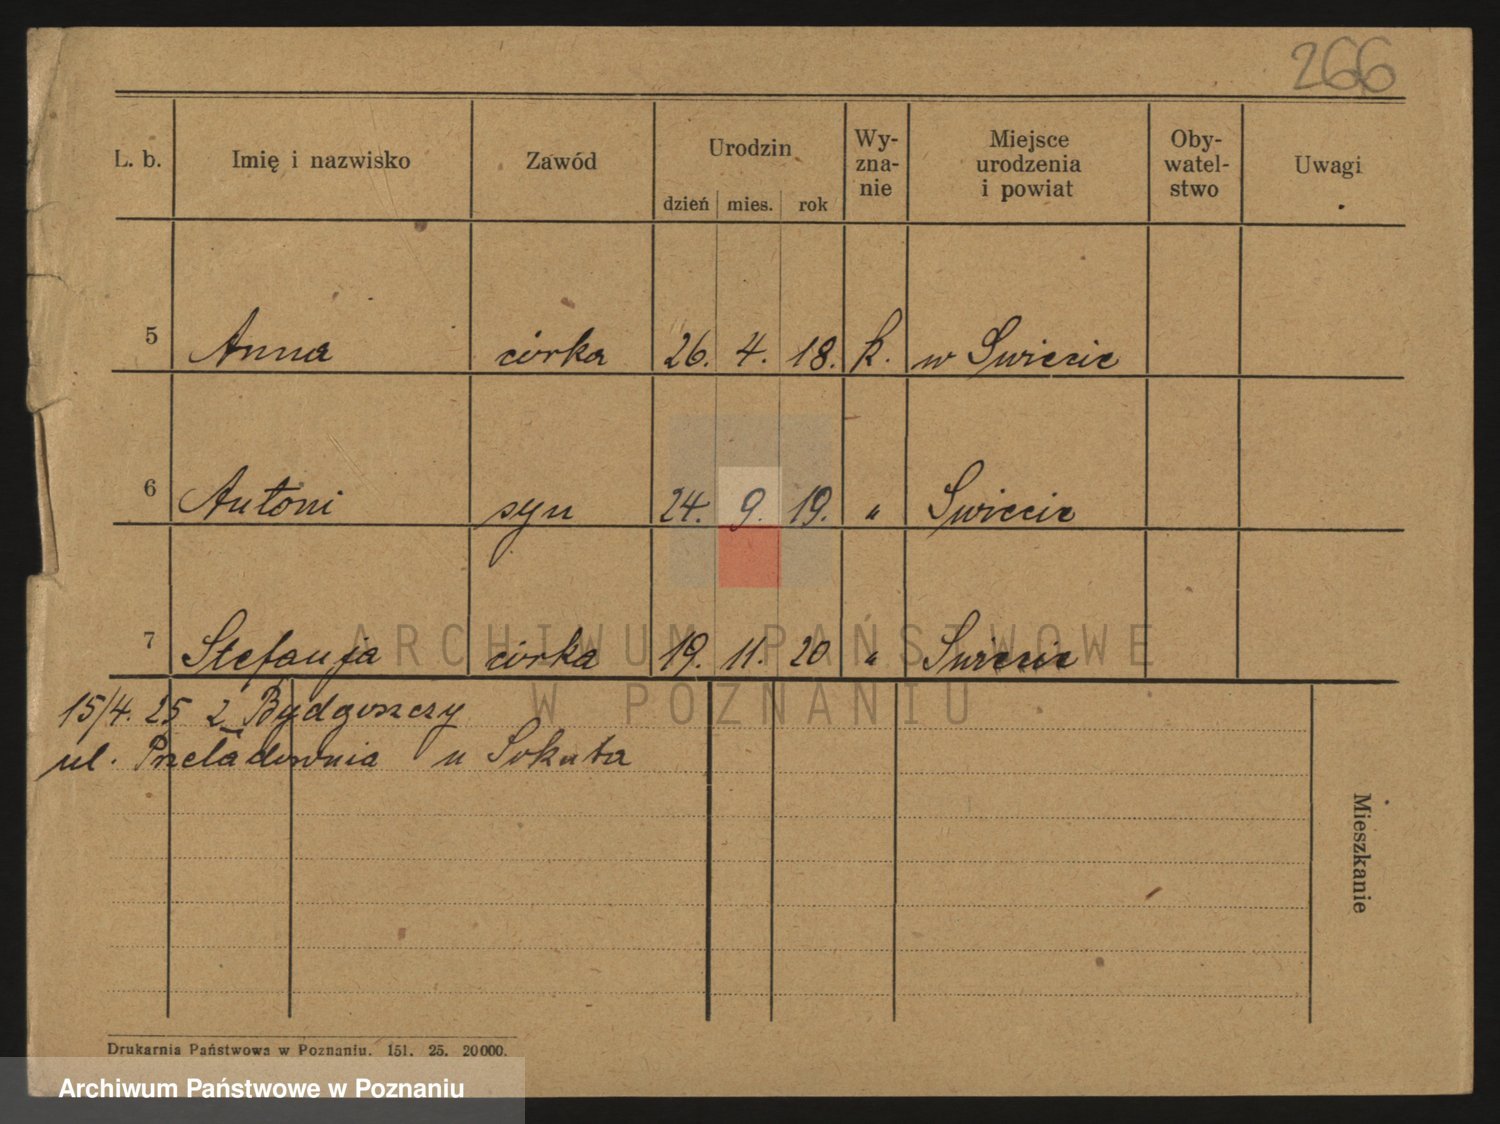 266
L. b. Imię i nazwisko Zawód Urodzin dzień mies. rok Wy-zna-nie Miejsce urodzenia i powiat Oby-watel-stwo Uwagi
5 Anna córka 26. 4. 18. k. w Swiecie
6 Antoni syn 24. 9. 19. " Swiecie
7 Stefanja córka 19. 11. 20 " Swiecie
ARCHIWUM PAŃSTWOWE
W POZNANIU
15/4. 25 z Bydgoszczy
ul. Przeładownia u Sokuta
Mieszkanie
Drukarnia Państwowa w Poznaniu. 151. 25. 20000.
Archiwum Państwowe w Poznaniu